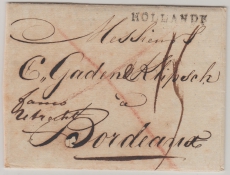 HOLLANDE
Messieurs
C. Gaden & Klipsch
à
franco
Utrecht
Bordeaux